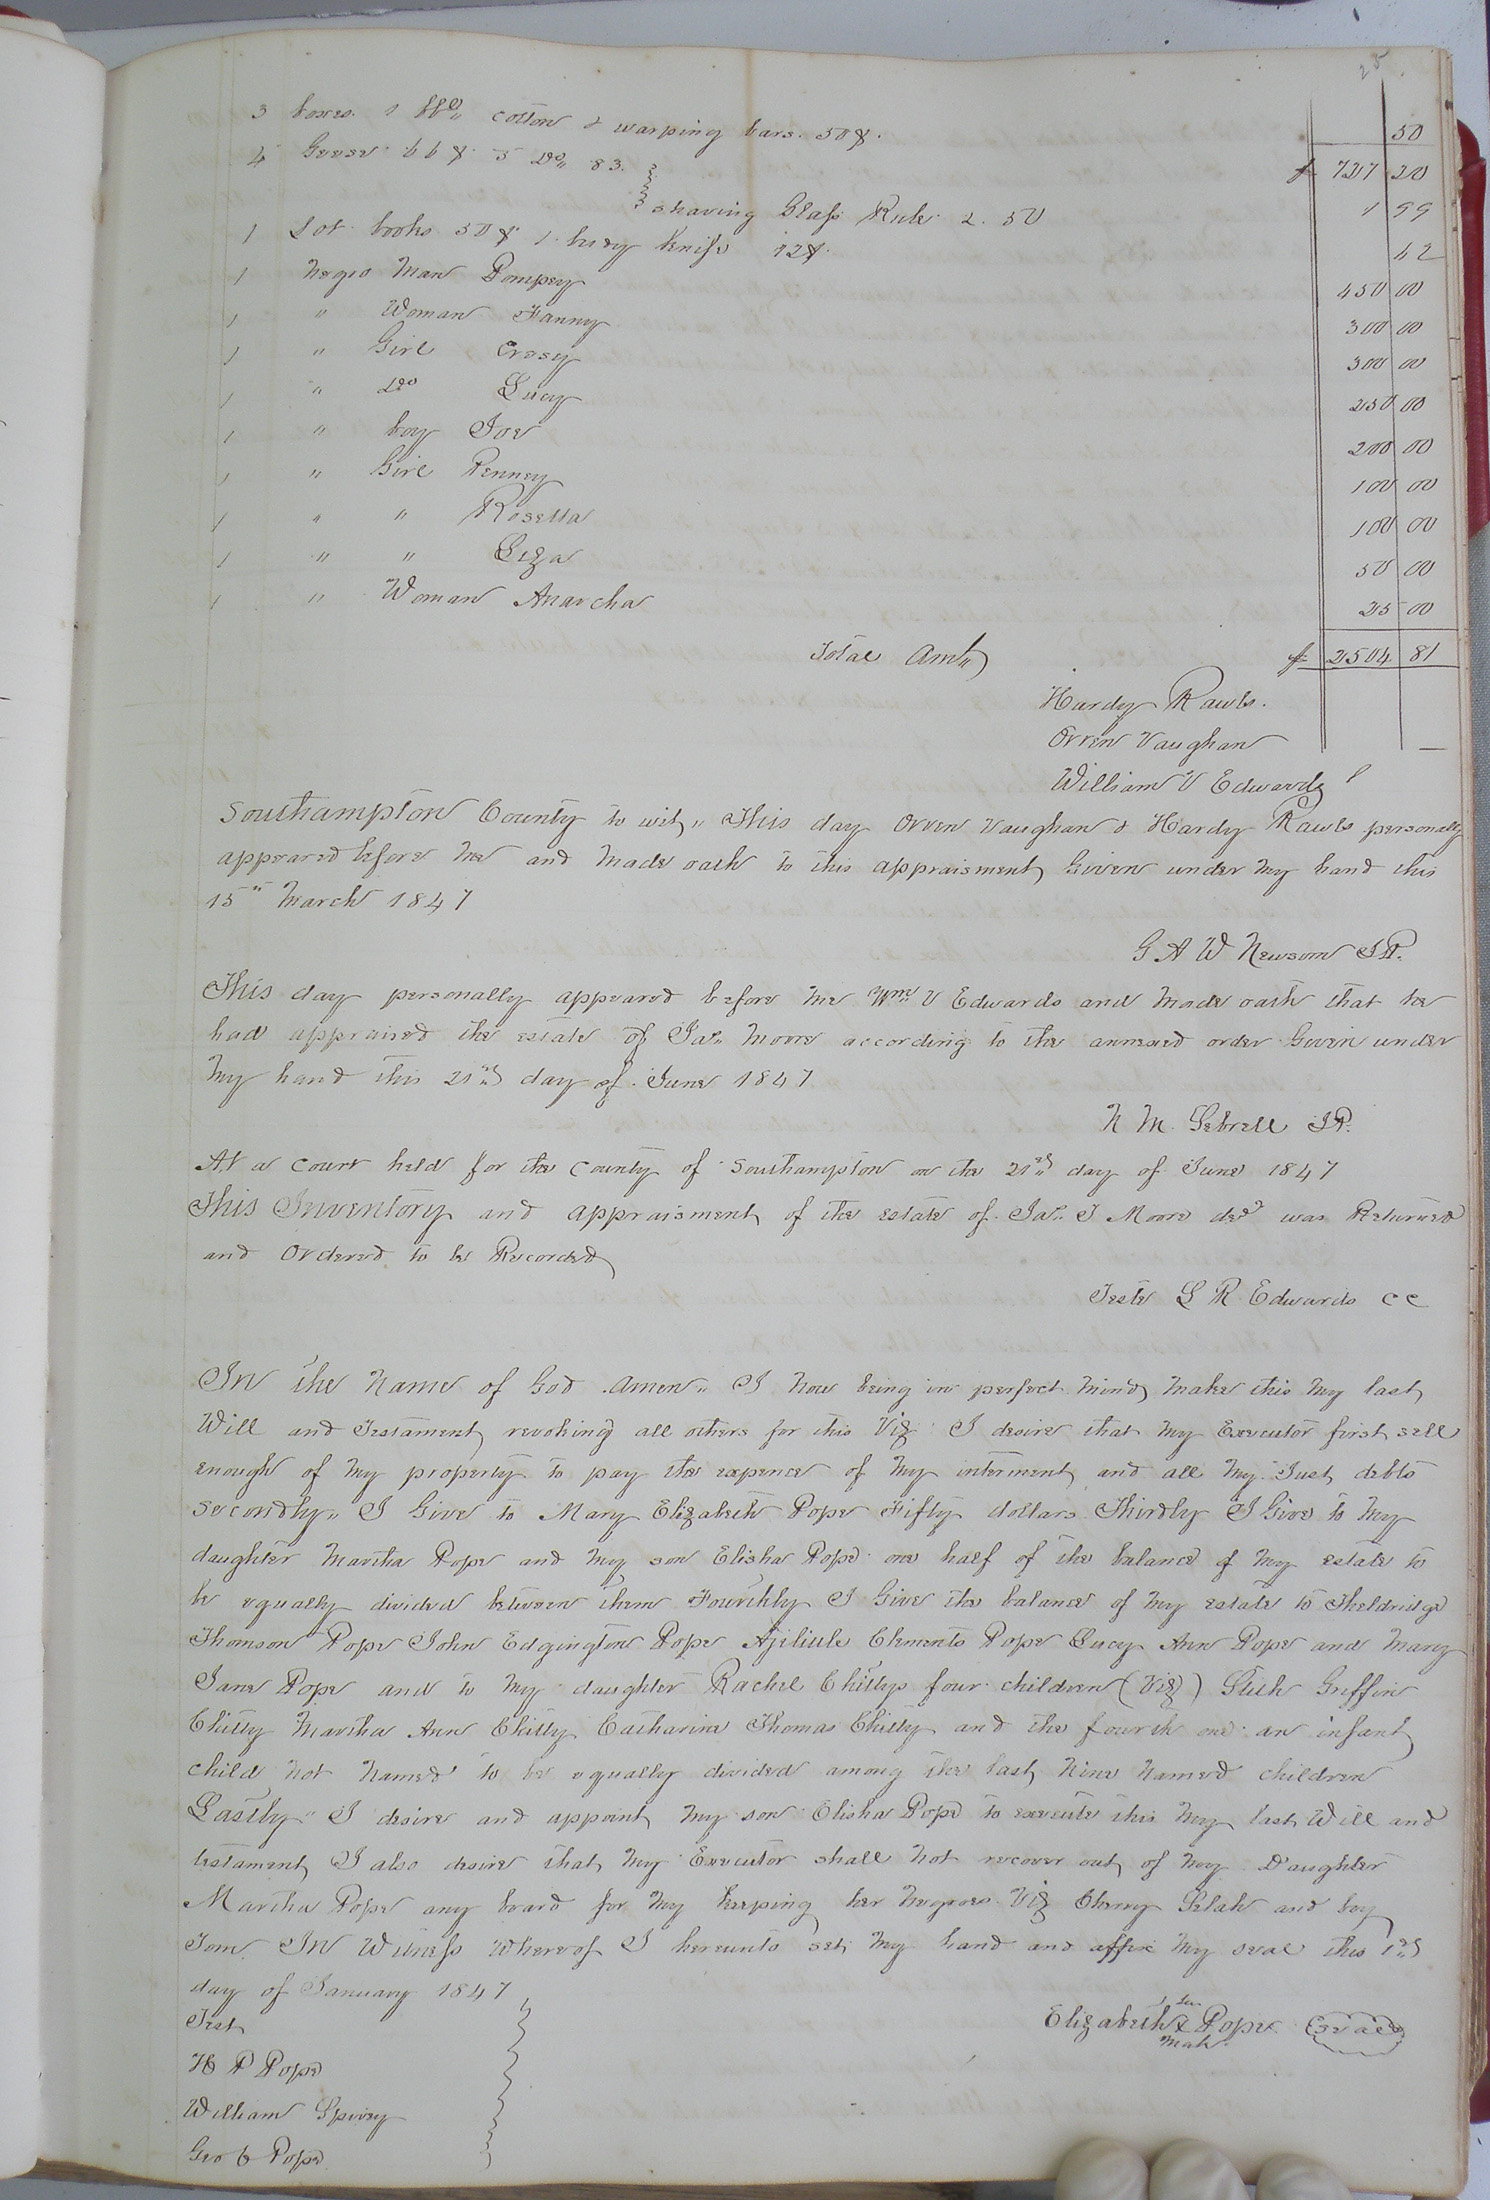 25
3 boxes. 1 bbl cotton & warping bars. 50¢. 50
4 Geese 66¢ 5 Do 83. $ 727 20
shaving Glass Rule 2. 50 1 99
1 Lot books 50¢ 1 knife 12¢. 62
1 Negro Man Pompey 450 00
1 " Woman Fanny 300 00
1 " Girl Crosy 300 00
1 " Do Lucy 250 00
1 " boy Joe 200 00
1 " Girl Penney 100 00
1 " " Rosetta 100 00
1 " " Liza 50 00
1 " Woman Anarcha 25 00
Total Amt $ 2504 81
Hardy Rawls.
Orren Vaughan
William V Edwards
Southampton County to wit, This day Orren Vaughan & Hardy Rawls personally
appeared before me and made oath to this appraisment Given under my hand this
15th March 1847
G A W Newsom J.P.
This day personally appeared before me Wm V Edwards and made oath that he
had appraised the estate of Jas. Moore according to the annexed order Given under
My hand this 21st day of June 1847
N M. Sebrell J.P.
At a court held for the County of Southampton on the 21st day of June 1847
This Inventory and appraisment of the estate of Jas. J Moore decd was Returned
and Ordered to be Recorded
Teste L R Edwards CC
In the Name of God Amen" I now being in perfect mind make this my last
Will and Testament revoking all others for this Viz I desire that my Executor first sell
enough of my property to pay the expence of my interment and all my Just debts
Secondly" I Give to Mary Elizabeth Pope Fifty dollars Thirdly I Give to my
daughter Martha Pope and my son Elisha Pope one half of the balance of my estate to
be equally divided between them Fourthly I Give the balance of my estate to Theldridge
Thomson Pope John Edgington Pope Clements Pope Lucy Ann Pope and Mary
Jane Pope and to my daughter Rachel Chittys four children (Viz) Griffin
Chitty Martha Ann Chitty Catharine Thomas Chitty and the fourth one an infant
child not named to be equally divided among the last nine named children
Lastly" I desire and appoint my son Elisha Pope to execute this my last Will and
testament I also desire that my Executor shall not recover out of my Daughter
Martha Pope any board for my keeping her negroes Viz Cherry Selah and boy
Tom. In Witness Whereof I hereunto set my hand and affix my seal this 1st
day of January 1847
Test
her
Elizabeth X Pope seal
mark
H P Pope
William Spivey
Geo Pope